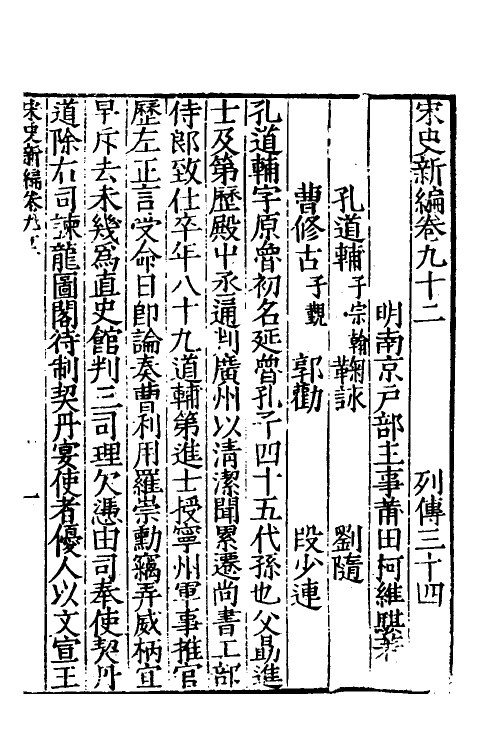 宋史新編卷九十二 列傳三十四
明南京戶部主事莆田柯維騏著
孔道輔子宗翰 鞠詠 劉隨
曹修古子覲 郭勸 段少連
孔道輔字原魯初名延魯孔子四十五代孫也父勗進
士及第歷殿中丞通判廣州以清潔聞累遷尚書工部
侍郎致仕卒年八十九道輔第進士授寧州軍事推官
歷左正言受命日卽論奏曹利用羅崇勳竊弄威柄宜
早斥去未幾爲直史館判三司理欠憑由司奉使契丹
道除右司諫龍圖閣待制契丹宴使者優人以文宣王
宋史新編卷九十二 一